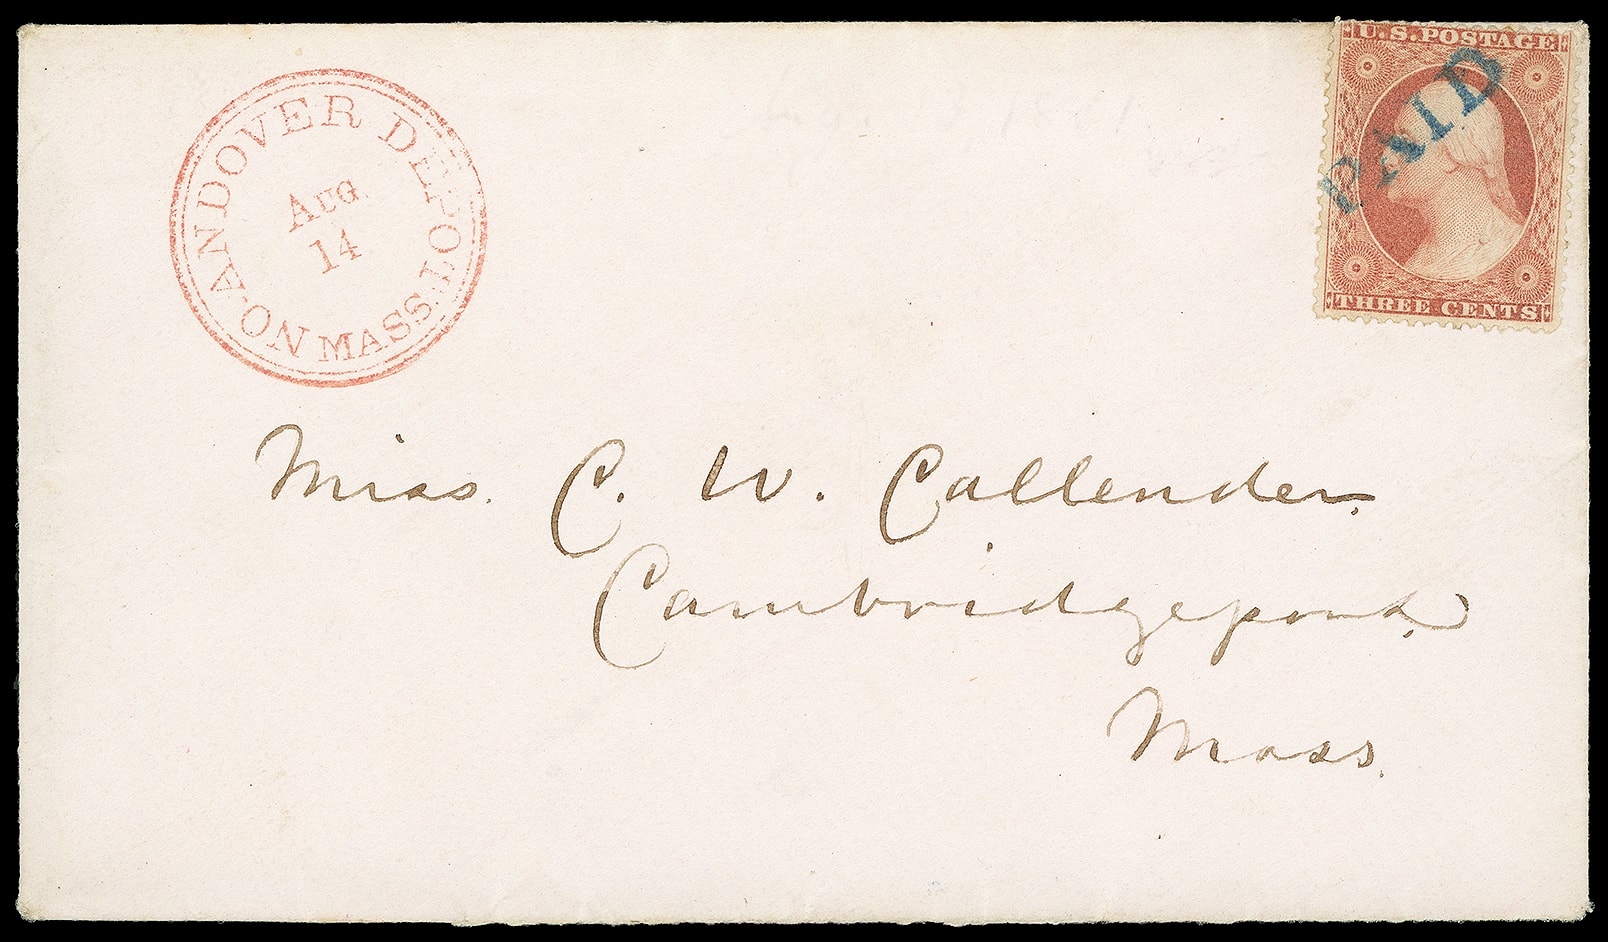 NO. ANDOVER DEPOT. MASS.
AUG.
14
U.S. POSTAGE
PAID
THREE CENTS
Miss. C. W. Callender.
Cambridgeport,
Mass.